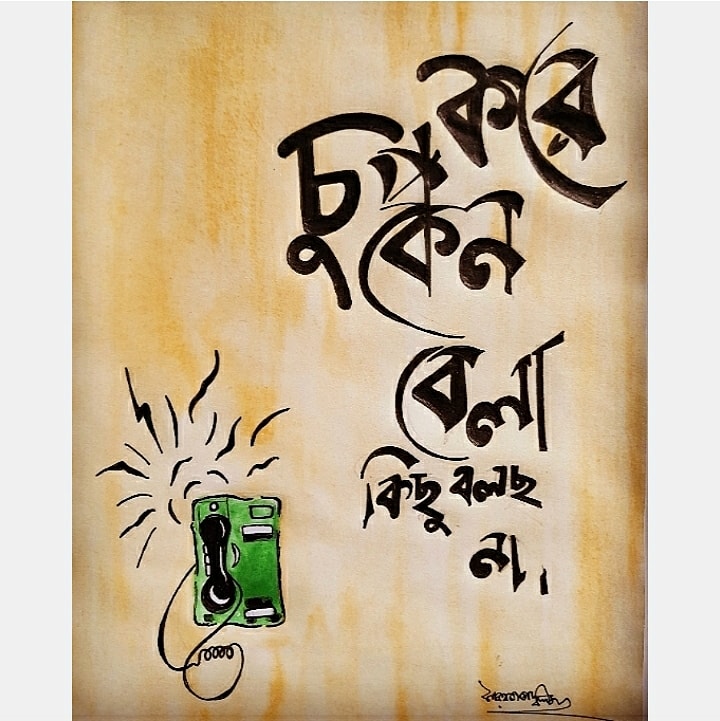 চুপ করে
কেন
বেলা
কিছু বলছ
না।